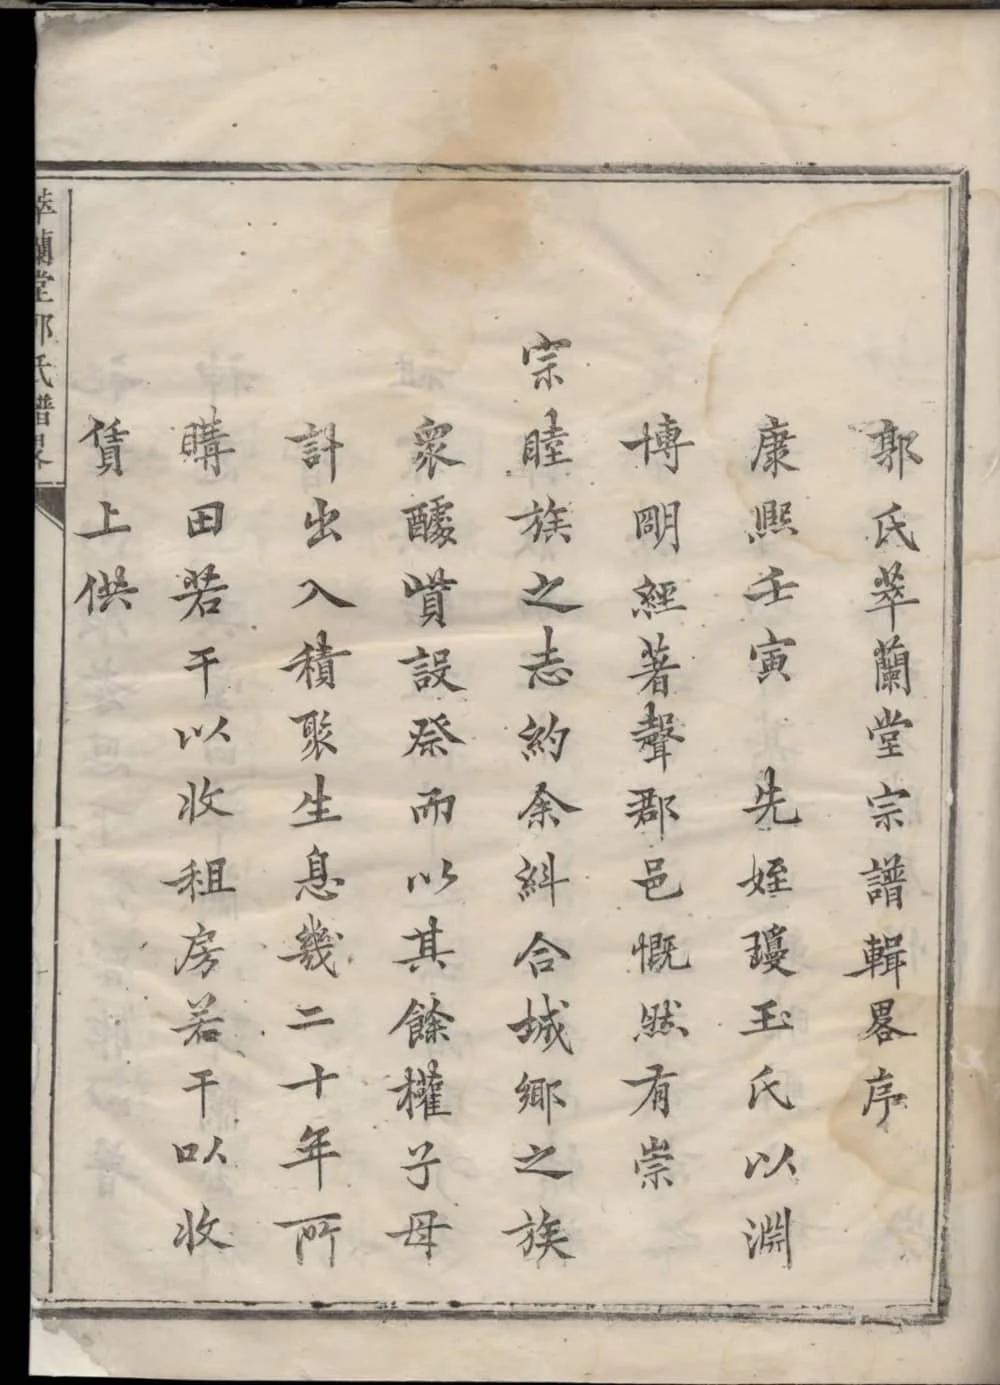 郭氏萃蘭堂宗譜輯畧序
康熙壬寅 先姪瓊玉氏以淵
博明經著聲郡邑慨然有崇
宗睦族之志約余糾合城鄉之族
衆醵貲設祭而以其餘權子母
計出入積聚生息幾二十年所
購田若干以收租房若干以收
賃上供
萃蘭堂郭氏譜畧